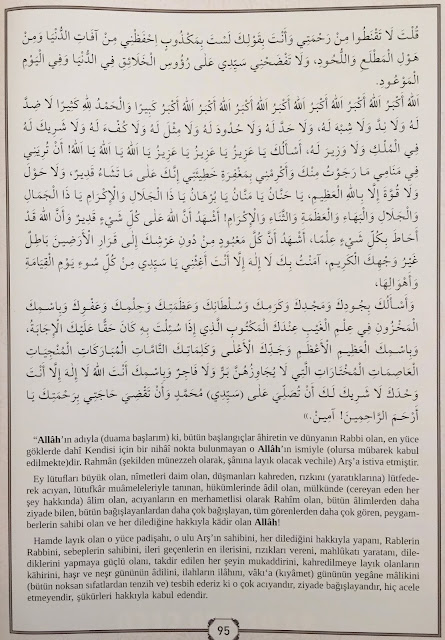 قُلْتَ لَا تَقْنَطُوا مِنْ رَحْمَتِي وَأَنْتَ بِقَوْلِكَ لَسْتَ بِمَكْذُوبٍ اِحْفَظْنِي مِنْ آفَاتِ الدُّنْيَا وَمِنْ
هَوْلِ الْمَطْلَعِ وَاللُّحُودِ، وَلَا تَفْضَحْنِي سَيِّدِي عَلَى رُؤُوسِ الْخَلَائِقِ فِي الدُّنْيَا وَفِي الْيَوْمِ
الْمَوْعُودِ.
اَللهُ أَكْبَرُ اَللهُ أَكْبَرُ اَللهُ أَكْبَرُ اَللهُ أَكْبَرُ اَللهُ أَكْبَرُ اَللهُ أَكْبَرُ كَبِيرًا وَالْحَمْدُ لِلهِ كَثِيرًا لَا ضِدَّ
لَهُ وَلَا نِدَّ وَلَا شِبْهَ لَهُ، وَلَا حَدَّ لَهُ وَلَا حُدُودَ لَهُ وَلَا مِثْلَ لَهُ وَلَا كُفْءَ لَهُ وَلَا شَرِيكَ لَهُ
فِي الْمُلْكِ وَلَا وَزِيرَ لَهُ، أَسْأَلُكَ يَا عَزِيزُ يَا عَزِيزُ يَا عَزِيزُ يَا اَللهُ يَا اَللهُ يَا اَللهُ! أَنْ تُرِيَنِي
فِي مَنَامِي مَا رَجَوْتُ مِنْكَ وَأَكْرِمْنِي بِمَغْفِرَةِ خَطِيئَتِي إِنَّكَ عَلَى مَا تَشَاءُ قَدِيرٌ، وَلَا حَوْلَ
وَلَا قُوَّةَ إِلَّا بِاللهِ الْعَظِيمِ، يَا حَنَّانُ يَا مَنَّانُ يَا بُرْهَانُ يَا ذَا الْجَلَالِ وَالْإِكْرَامِ يَا ذَا الْجَمَالِ
وَالْجَلَالِ وَالْبَهَاءِ وَالْعَظَمَةِ وَالثَّنَاءِ وَالْإِكْرَامِ! أَشْهَدُ أَنَّ اللهَ عَلَى كُلِّ شَيْءٍ قَدِيرٌ وَأَنَّ اللهَ قَدْ
أَحَاطَ بِكُلِّ شَيْءٍ عِلْمًا، أَشْهَدُ أَنَّ كُلَّ مَعْبُودٍ مِنْ دُونِ عَرْشِكَ إِلَى قَرَارِ الْأَرَضِينَ بَاطِلٌ
غَيْرُ وَجْهِكَ الْكَرِيمِ، آمَنْتُ بِكَ لَا إِلَهَ إِلَّا أَنْتَ أَغِثْنِي يَا سَيِّدِي مِنْ كُلِّ سُوءِ يَوْمِ الْقِيَامَةِ
وَأَهْوَالِهَا،
وَأَسْأَلُكَ بِجُودِكَ وَمَجْدِكَ وَكَرَمِكَ وَسُلْطَانِكَ وَعَظَمَتِكَ وَحِلْمِكَ وَعَفْوِكَ وَبِاسْمِكَ
الْمَخْزُونِ فِي عِلْمِ الْغَيْبِ عِنْدَكَ الْمَكْتُوبِ الَّذِي إِذَا سُئِلْتَ بِهِ كَانَ حَقًّا عَلَيْكَ الْإِجَابَةُ،
وَبِاسْمِكَ الْعَظِيمِ الْأَعْظَمِ وَجَدِّكَ الْأَعْلَى وَكَلِمَاتِكَ التَّامَّاتِ الْمُبَارَكَاتِ الْمُنْجِيَاتِ
الْعَاصِمَاتِ الْمُخْتَارَاتِ الَّتِي لَا يُجَاوِزُهُنَّ بَرٌّ وَلَا فَاجِرٌ وَبِاسْمِكَ أَنْتَ اللهُ لَا إِلَهَ إِلَّا أَنْتَ
وَحْدَكَ لَا شَرِيكَ لَكَ أَنْ تُصَلِّيَ عَلَى (سَيِّدِي) مُحَمَّدٍ وَأَنْ تَقْضِيَ حَاجَتِي بِرَحْمَتِكَ يَا
أَرْحَمَ الرَّاحِمِينَ! آمِينُ.»
"Allâh'ın adıyla (duama başlarım) ki, bütün başlangıçlar âhiretin ve dünyanın Rabbi olan, en yüce
göklerde dahî Kendisi için bir nihâî nokta bulunmayan o Allâh'ın ismiyle (olursa mübarek kabul
edilmekte)dir. Rahmân (şekilden münezzeh olarak, şânına layık olacak vechile) Arş'a istiva etmiştir.
Ey lütufları büyük olan, nîmetleri daim olan, düşmanları kahreden, rızkını (yaratıklarına) lütfede-
rek acıyan, lütufkâr muâmeleleriyle tanınan, hükümlerinde âdil olan, mülkünde (cereyan eden her
şey hakkında) âlim olan, acıyanların en merhametlisi olarak Rahîm olan, bütün âlimlerden daha
ziyade bilen, bütün bağışlayanlardan daha çok bağışlayan, tüm görenlerden daha çok gören, peygam-
berlerin sahibi olan ve her dilediğine hakkıyla kâdir olan Allâh!
Hamde layık olan o yüce padişahı, o ulu Arş'ın sahibini, her dilediğini hakkıyla yapanı, Rablerin
Rabbini, sebeplerin sahibini, ileri geçenlerin en ilerisini, rızıkları vereni, mahlûkatı yaratanı, dile-
diklerini yapmaya güçlü olanı, takdir edilen her şeyin mukaddirini, kahredilmeye layık olanların
kâhirini, haşr ve neşr gününün âdilini, ilahların ilâhını, vâkı'a (kıyâmet) gününün yegâne mâlikini
(bütün noksan sıfatlardan tenzih ve) tesbih ederiz ki o çok acıyandır, ziyade bağışlayandır, hiç acele
etmeyendir, şükürleri hakkıyla kabul edendir.
95